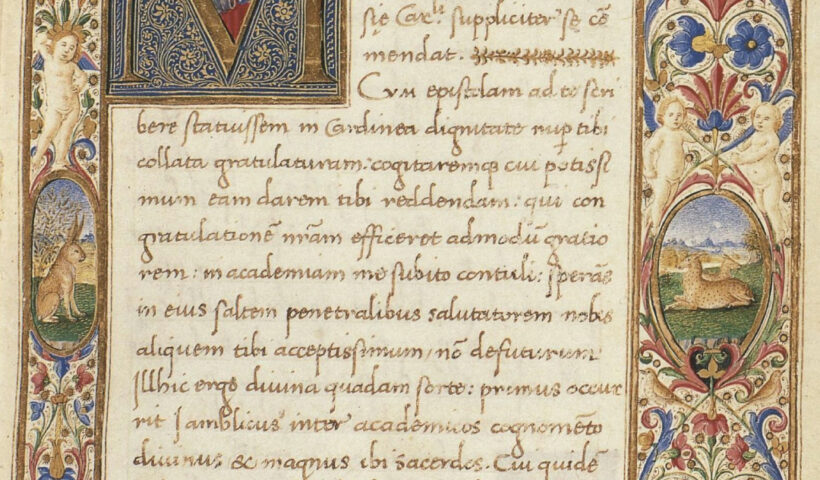 M
się Car.lı suppliciter se cō
mendat.
Cvm epistolam ad te scri
bere statuissem in Cardinea dignitate nup tibi
collata gratulaturam: cogitaremqꝫ cui potissi
mum eam darem tibi reddendam: qui con
gratulationē nr̄am efficeret admodū gratio
rem: in academiam me subito contuli: sperās
in eius saltem penetralibus salutatorem nobis
aliquem tibi acceptissimum, nō defuturum
Illhic ergo divina quadam sorte: primus occur
rit Iamblicus inter academicos cognomēto
divinus & magnus ibi sacerdos. Cui quidē